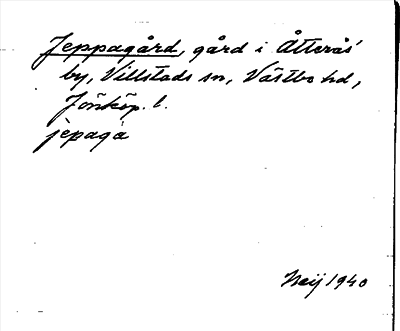 Jeppagård, gård i Åtterås
by, Villstads sn, Västbo hd,
Jönköp. l.
jepaga
Neij 1940